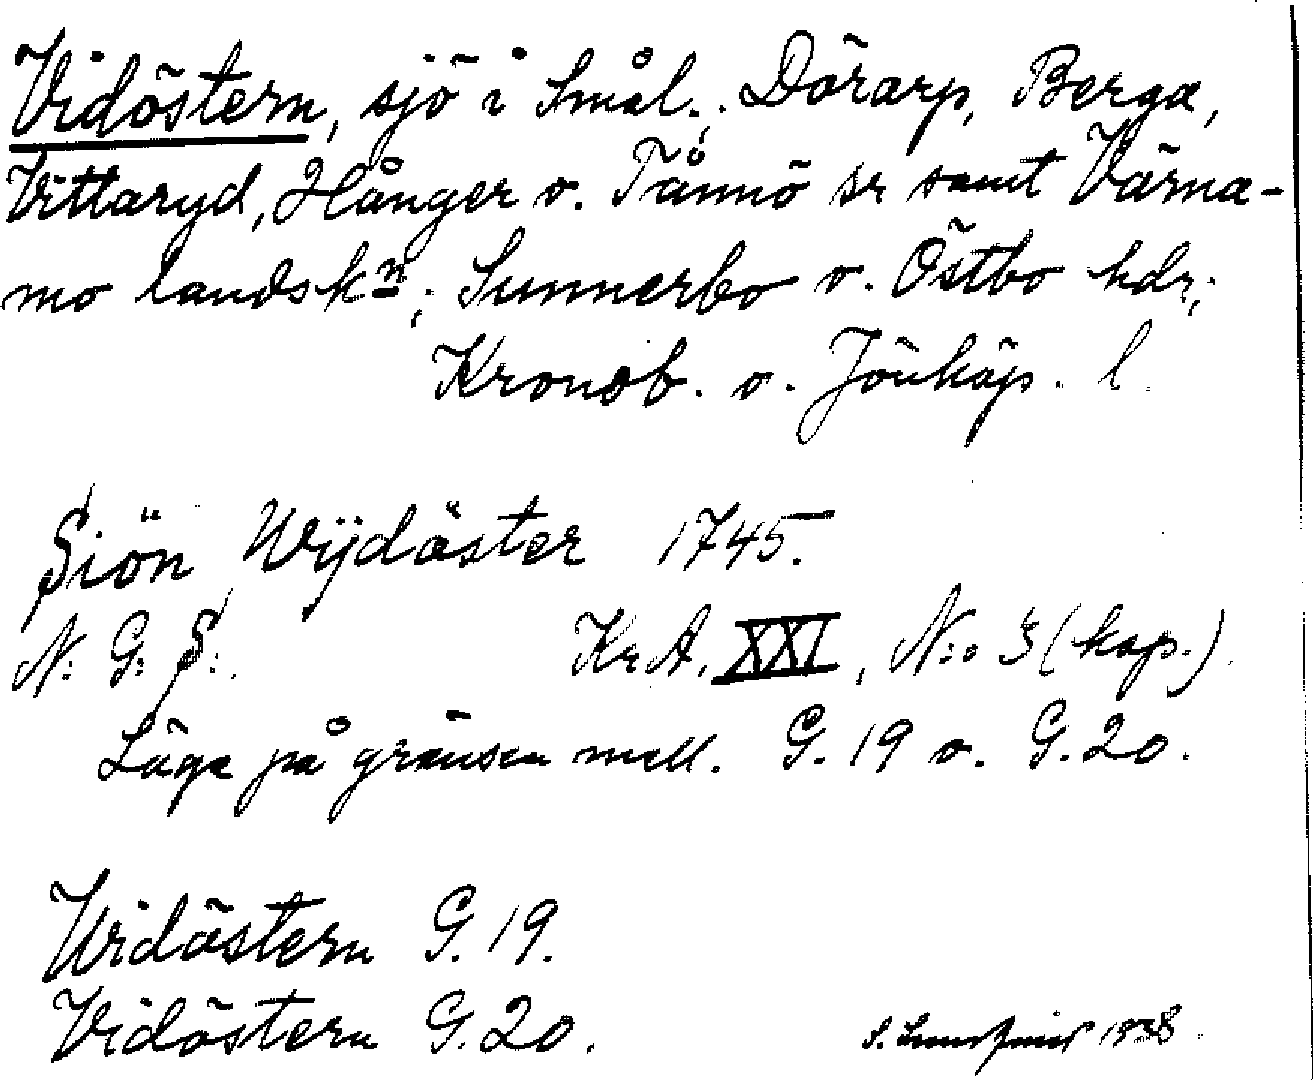 Vidöstern, sjö i Smål.; Dörarp, Berga,
Vittaryd, Hånger o. Tånnö sr samt Värna-
mo landskn; Sunnerbo o. Östbo hdr;
Kronob. o. Jönköp. l.
Siön Wÿdöster 1745.
N: G: S:. Kr.A. XXI, N:o 3 (kop.)
Läge på gränsen mell. G. 19 o. G. 20.
Widöstern G. 19.
Vidöstern G. 20.
S. 1938